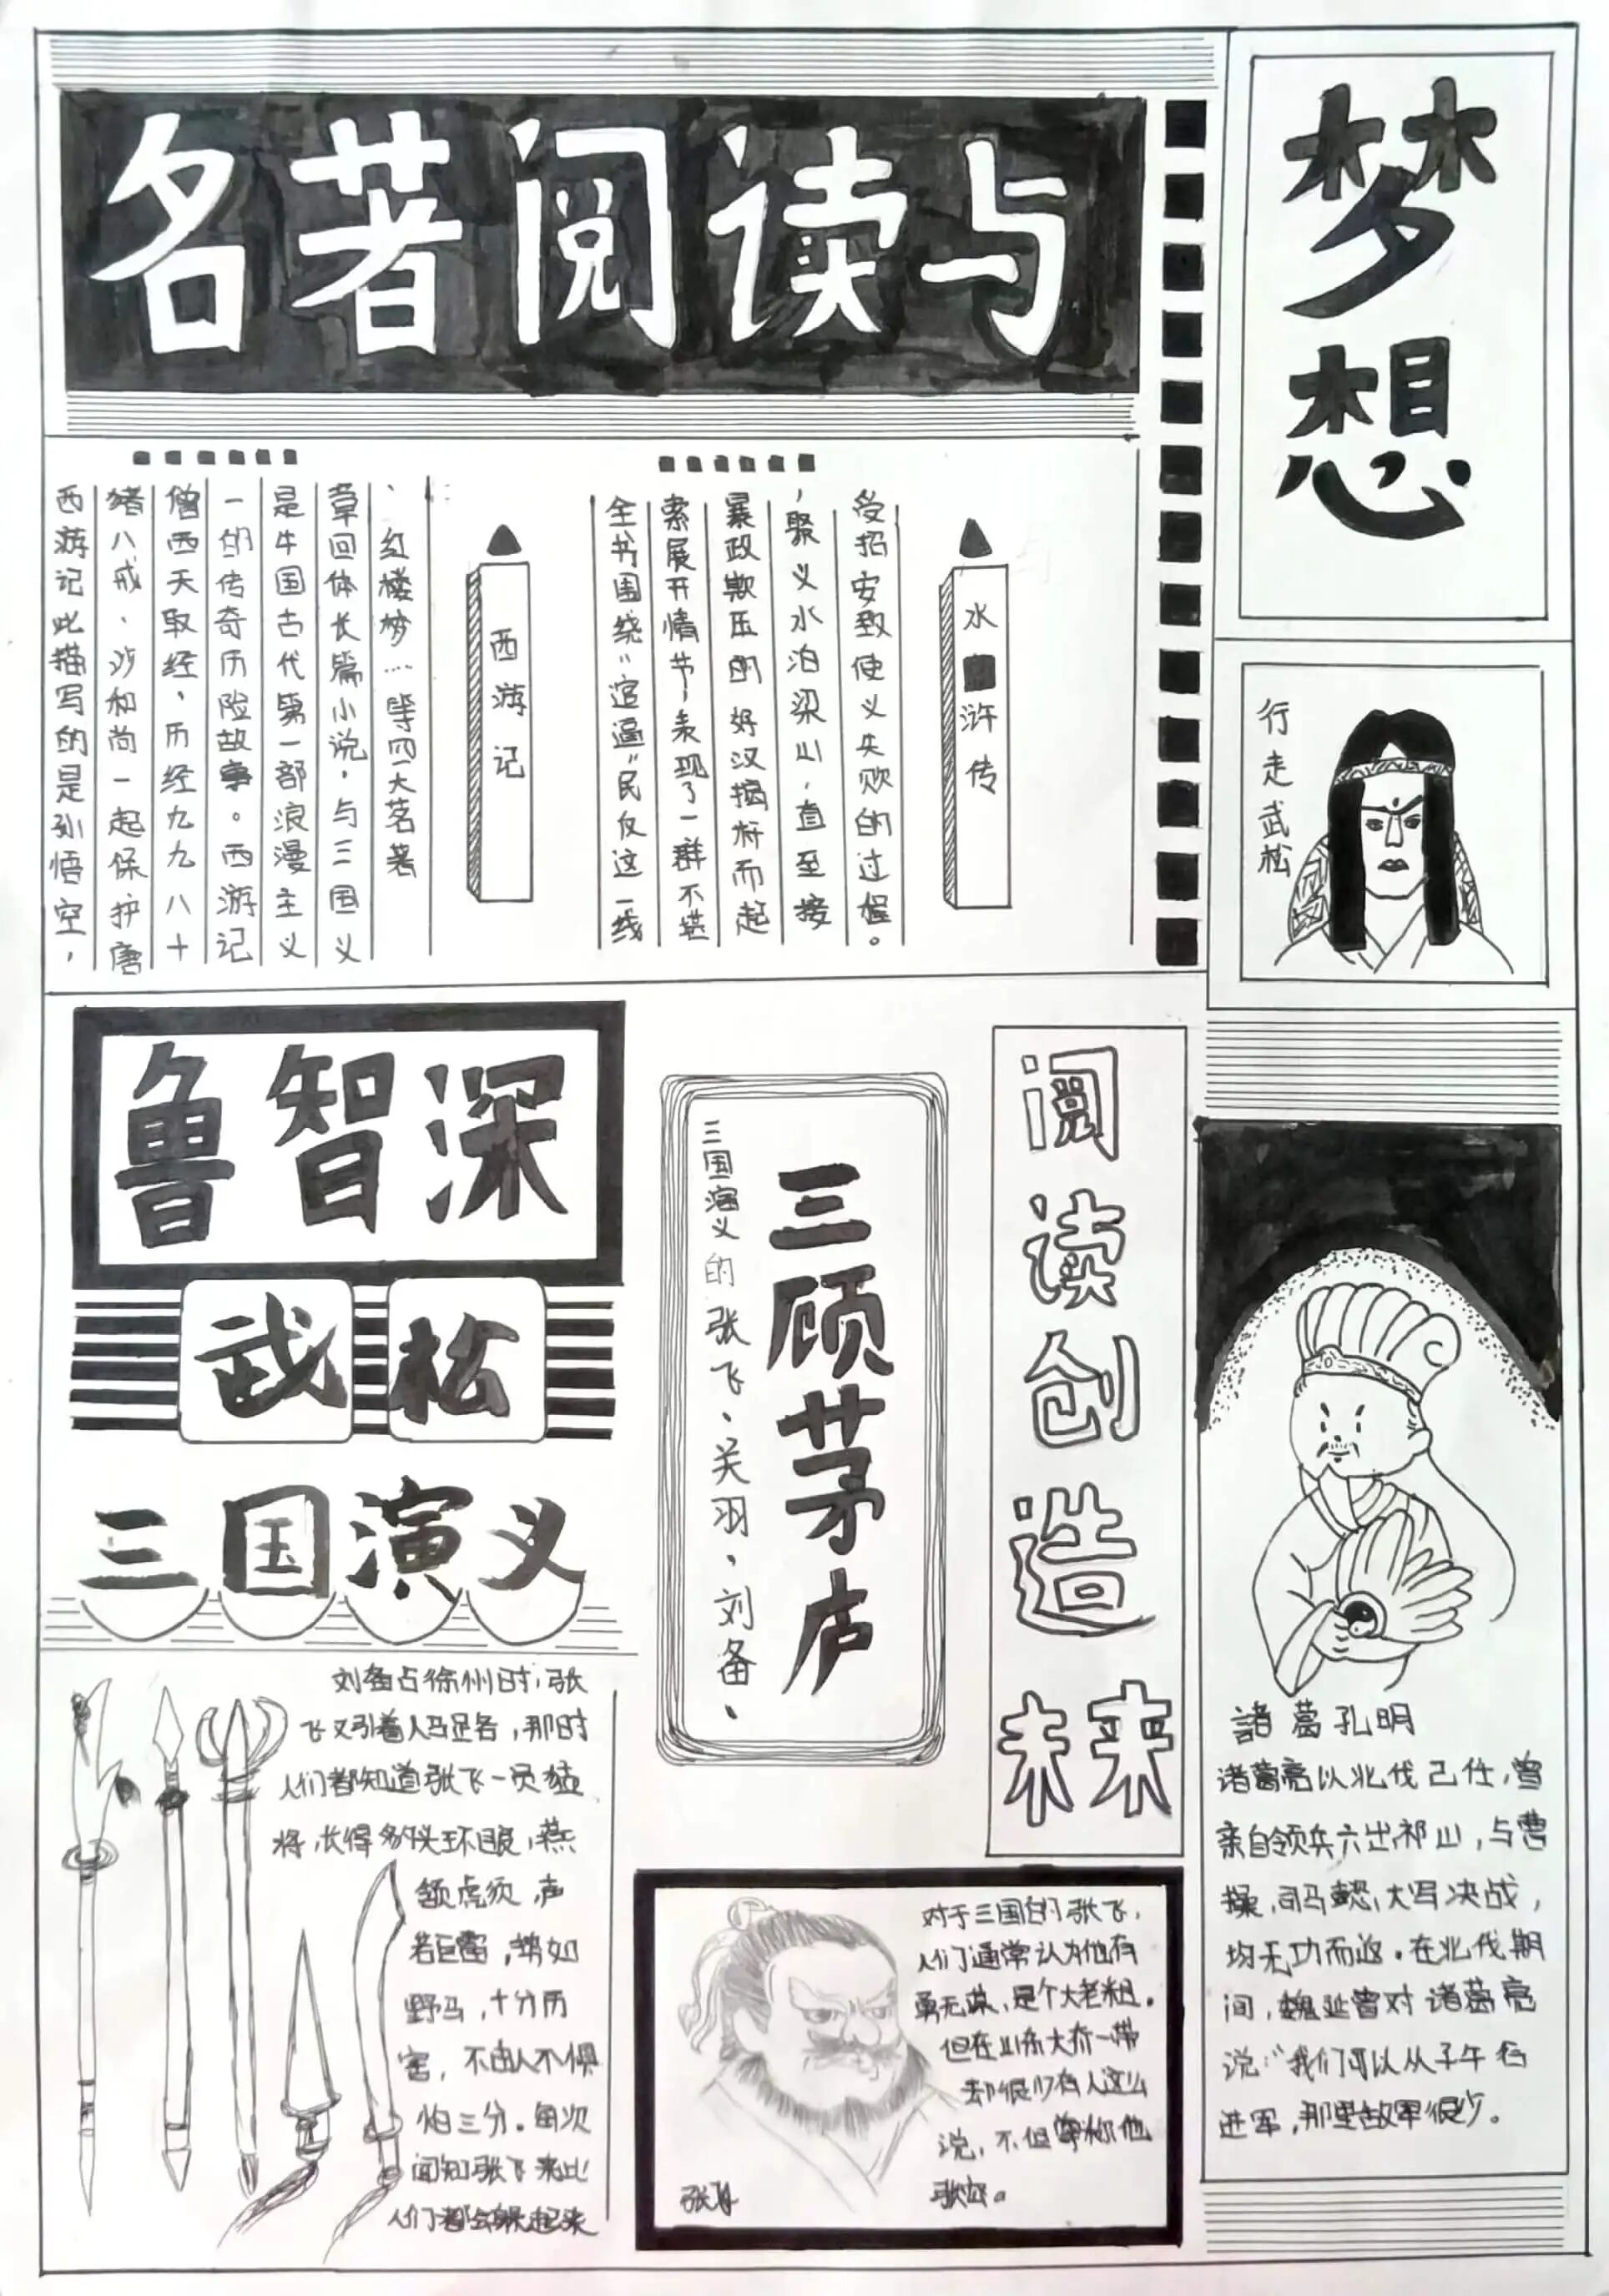 名著阅读与
梦想
西游记此描写的是孙悟空，
猪八戒、沙和尚一起保护唐
僧西天取经，历经九九八十
一的传奇历险故事。西游记
是牛国古代第一部浪漫主义
章回体长篇小说，与三国义
、红楼梦…等四大茗著
西游记
全书围绕"官逼"民反这一线
索展开情节，表现了一群不堪
暴政欺压的好汉揭杆而起
，聚义水泊梁山，直至接
受招安致使义失败的过程。
水浒传
行走武松
鲁智深
武松
三国演义
三国演义的张飞、关羽、刘备、
三顾茅庐
阅读创造未来
刘备占徐州时，张
飞又引着人马足各，那时
人们都知道张飞一员猛
将，长得豹头环眼，燕
颔虎须，声
若巨雷，势如
野马，十分历
害，不由人不惧
怕三分。每次
闻知张飞来比
人们都会躲起来
对于三国的张飞，
人们通常认为他有
勇无谋，是个大老粗。
但在山东大齐一带
却很少有人这么
说，不但尊称他
张飞
諸葛孔明
诸葛亮以北伐己任，曾
亲自领兵六出祁山，与曹
操，司马懿，大写决战，
均无功而返。在北伐期
间，魏延曾对诸葛亮
说："我们可以从子午谷
进军，那里敌军很少。